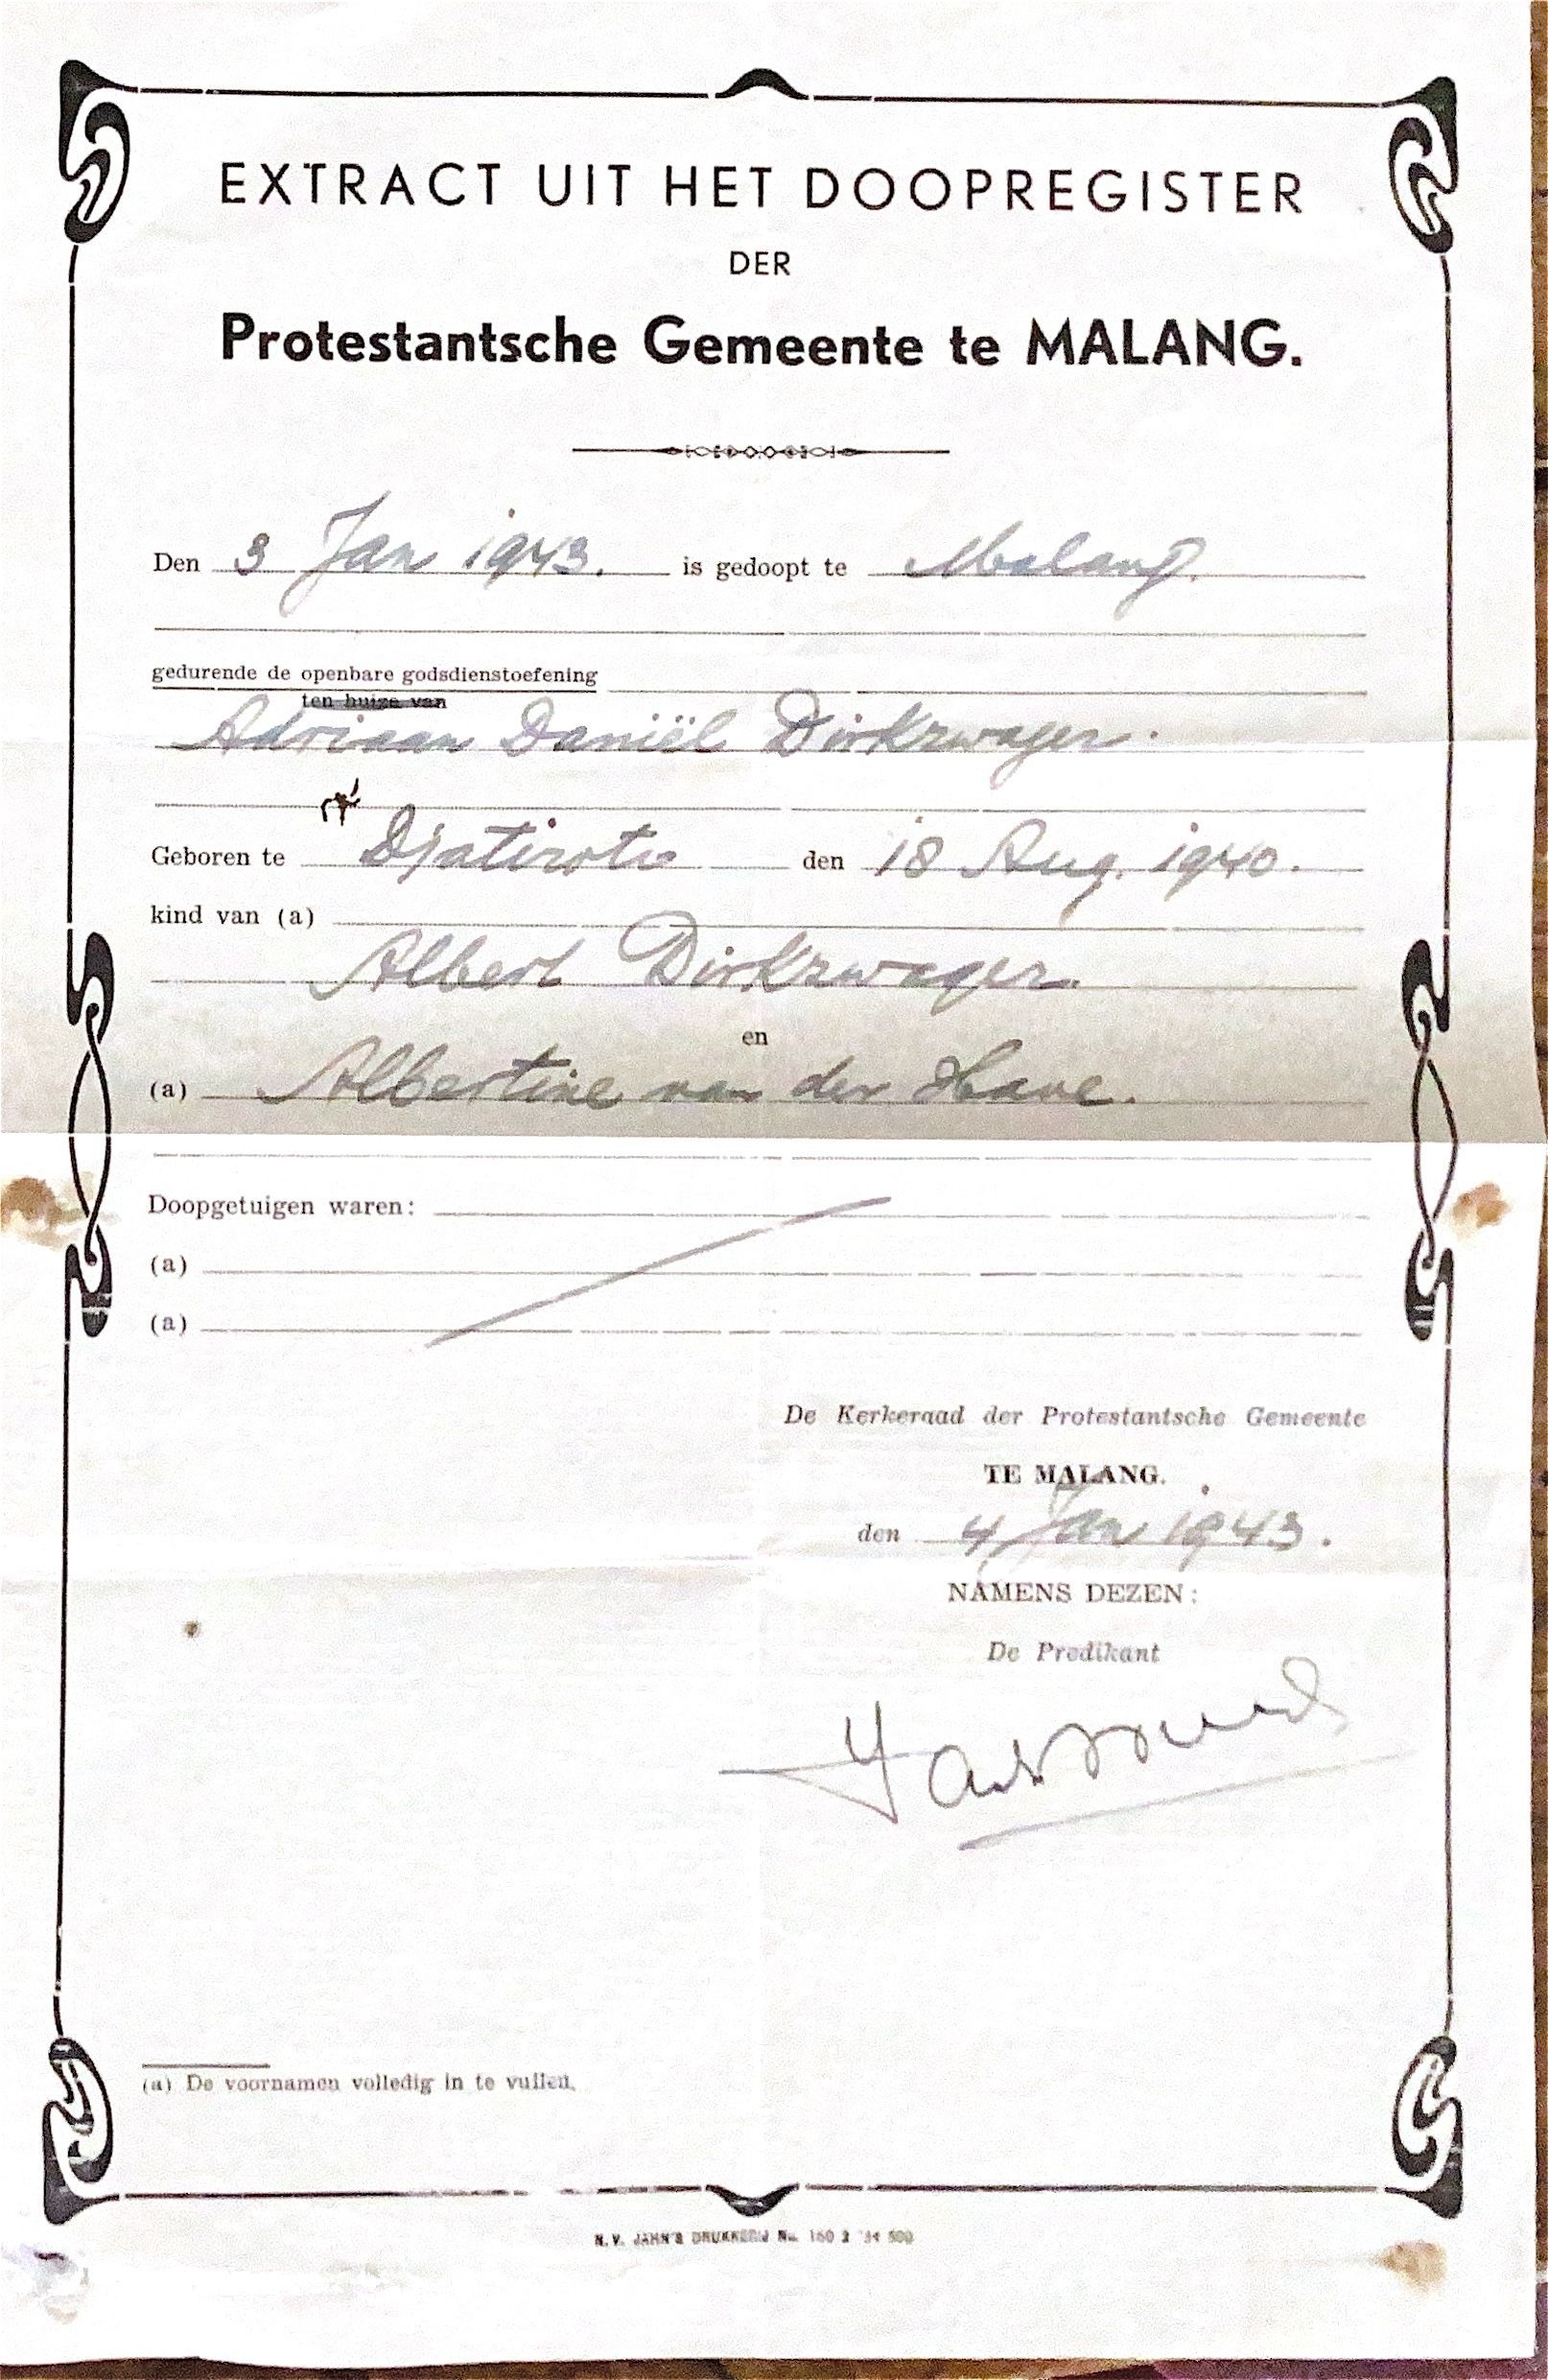 EXTRACT UIT HET DOOPREGISTER
DER
Protestantsche Gemeente te MALANG.
Den 3 Jan 1943. is gedoopt te Malang.
gedurende de openbare godsdienstoefening
ten huize van
Adriaan Daniël Dirkzwager.
Geboren te Djatiroto den 18 Aug. 1940.
kind van (a)
Albert Dirkzwager.
en
(a) Albertine van der Have.
Doopgetuigen waren:
(a)
(a)
De Kerkeraad der Protestantsche Gemeente
TE MALANG.
den 4 Jan 1943.
NAMENS DEZEN:
De Predikant
(a) De voornamen volledig in te vullen.
N.V. JAHN'S DRUKKERIJ No. 160 2 '34 500